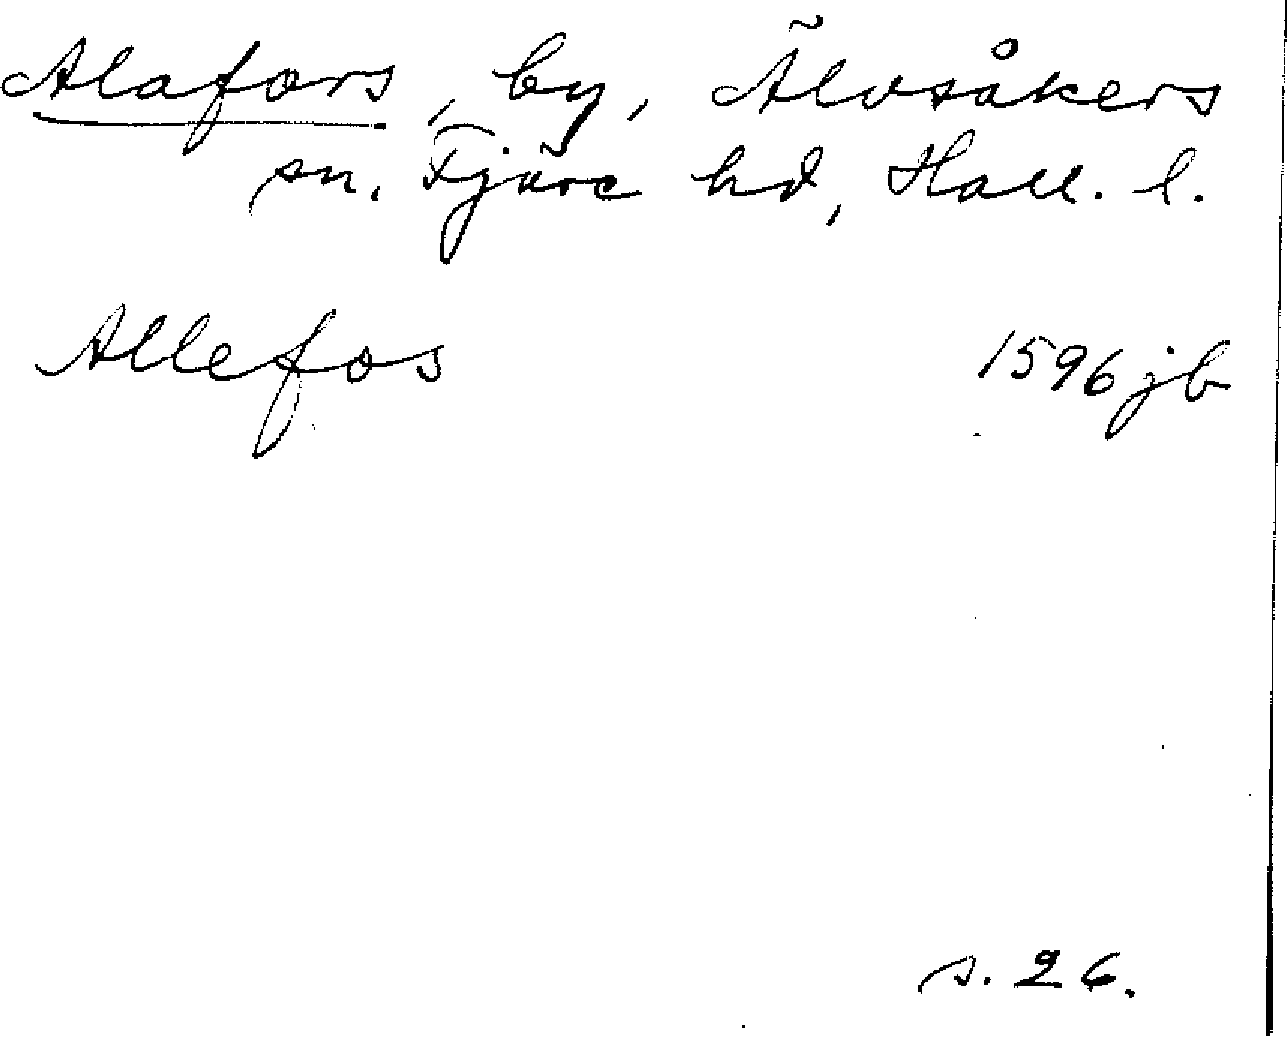 Alafors, by, Älvsåkers
sn. Fjäre hd, Hall. l.
Allefos 1596 jb
s. 26.